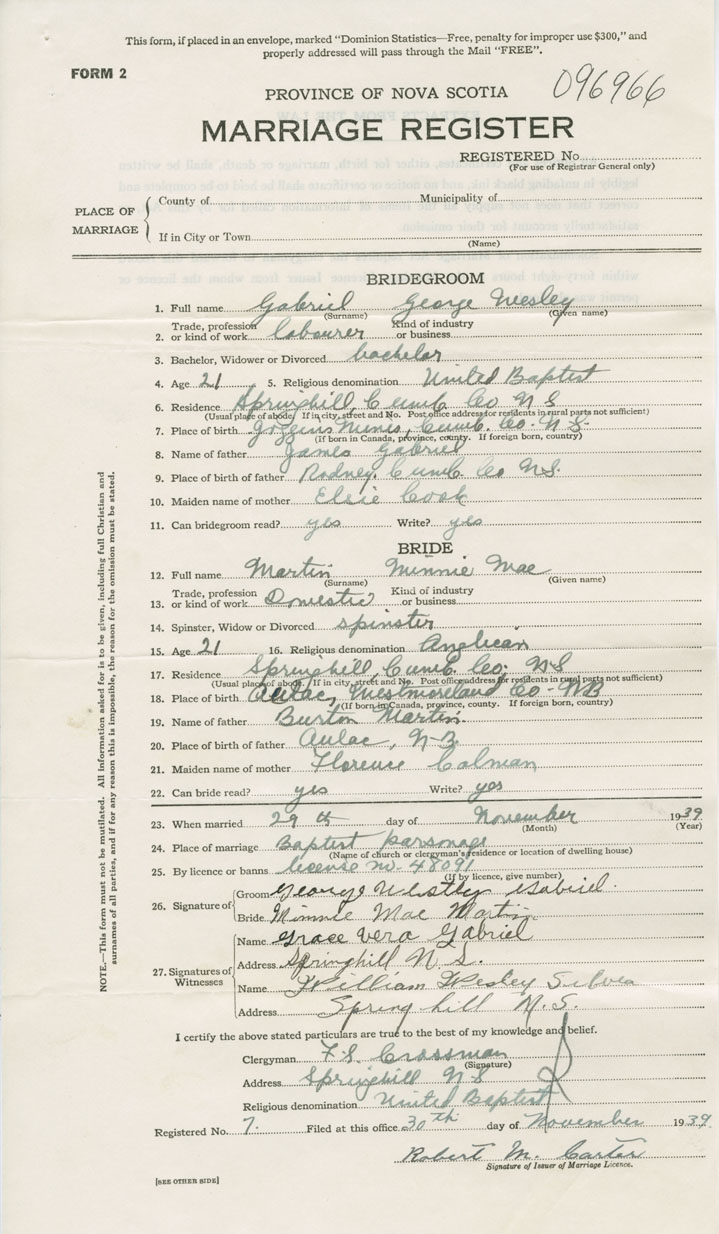 This form, if placed in an envelope, marked "Dominion Statistics—Free, penalty for improper use $300," and
properly addressed will pass through the Mail "FREE".
FORM 2
096966
PROVINCE OF NOVA SCOTIA
MARRIAGE REGISTER
REGISTERED No.
(For use of Registrar General only)
PLACE OF MARRIAGE
County of Municipality of
If in City or Town
(Name)
BRIDEGROOM
1. Full name Gabriel George Wesley
(Surname) (Given name)
2. Trade, profession or kind of work labourer Kind of industry or business
3. Bachelor, Widower or Divorced bachelor
4. Age 21 5. Religious denomination United Baptist
6. Residence Springhill, Cumb. Co N S
(Usual place of abode. If in city, street and No. Post office address for residents in rural parts not sufficient)
7. Place of birth Joggins Mines, Cumb. Co. N. S.
(If born in Canada, province, county. If foreign born, country)
8. Name of father James Gabriel
9. Place of birth of father Rodney, Cumb. Co N.S.
10. Maiden name of mother Elsie Cook
11. Can bridegroom read? yes Write? yes
BRIDE
12. Full name Martin Minnie Mae
(Surname) (Given name)
13. Trade, profession or kind of work Domestic Kind of industry or business
14. Spinster, Widow or Divorced spinster
15. Age 21 16. Religious denomination Anglican
17. Residence Springhill Cumb. Co; N.S
(Usual place of abode. If in city, street and No. Post office address for residents in rural parts not sufficient)
18. Place of birth Aulac, Westmoreland Co - NB
(If born in Canada, province, county. If foreign born, country)
19. Name of father Burton Martin.
20. Place of birth of father Aulac, N-B.
21. Maiden name of mother Florence Colman
22. Can bride read? yes Write? yes
23. When married 29th day of November 1939
(Month) (Year)
24. Place of marriage Baptist parsonage
(Name of church or clergyman's residence or location of dwelling house)
25. By licence or banns license no. 48091
(If by licence, give number)
26. Signature of
Groom George Westley Gabriel.
Bride Minnie Mae Martin.
27. Signatures of Witnesses
Name Grace Vera Gabriel
Address Springhill N S.
Name William Wesley
Address Spring hill N.S.
I certify the above stated particulars are true to the best of my knowledge and belief.
Clergyman F. S. Crossman
(Signature)
Address Springhill N S
Religious denomination United Baptist
Registered No. 7. Filed at this office 30th day of November 1939
Robert M. Carter
Signature of Issuer of Marriage Licence.
[SEE OTHER SIDE]
NOTE.—This form must not be mutilated. All information asked for is to be given, including full Christian and
surnames of all parties, and if for any reason this is impossible, the reason for the omission must be stated.